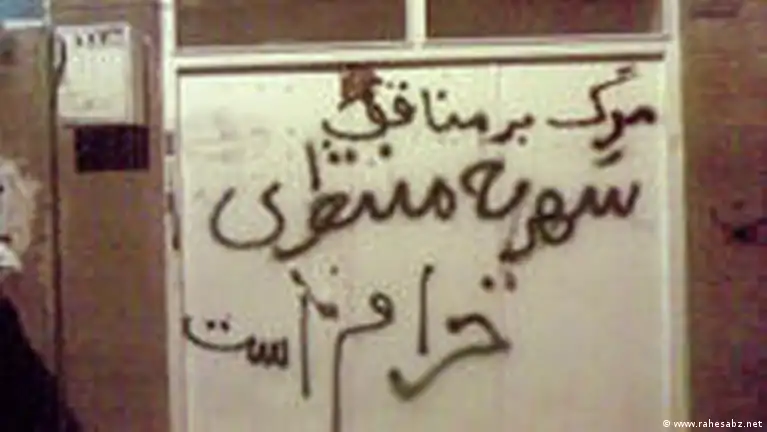 مرگ بر منافق
شهریه منتظری
حرام است
© www.rahesabz.net